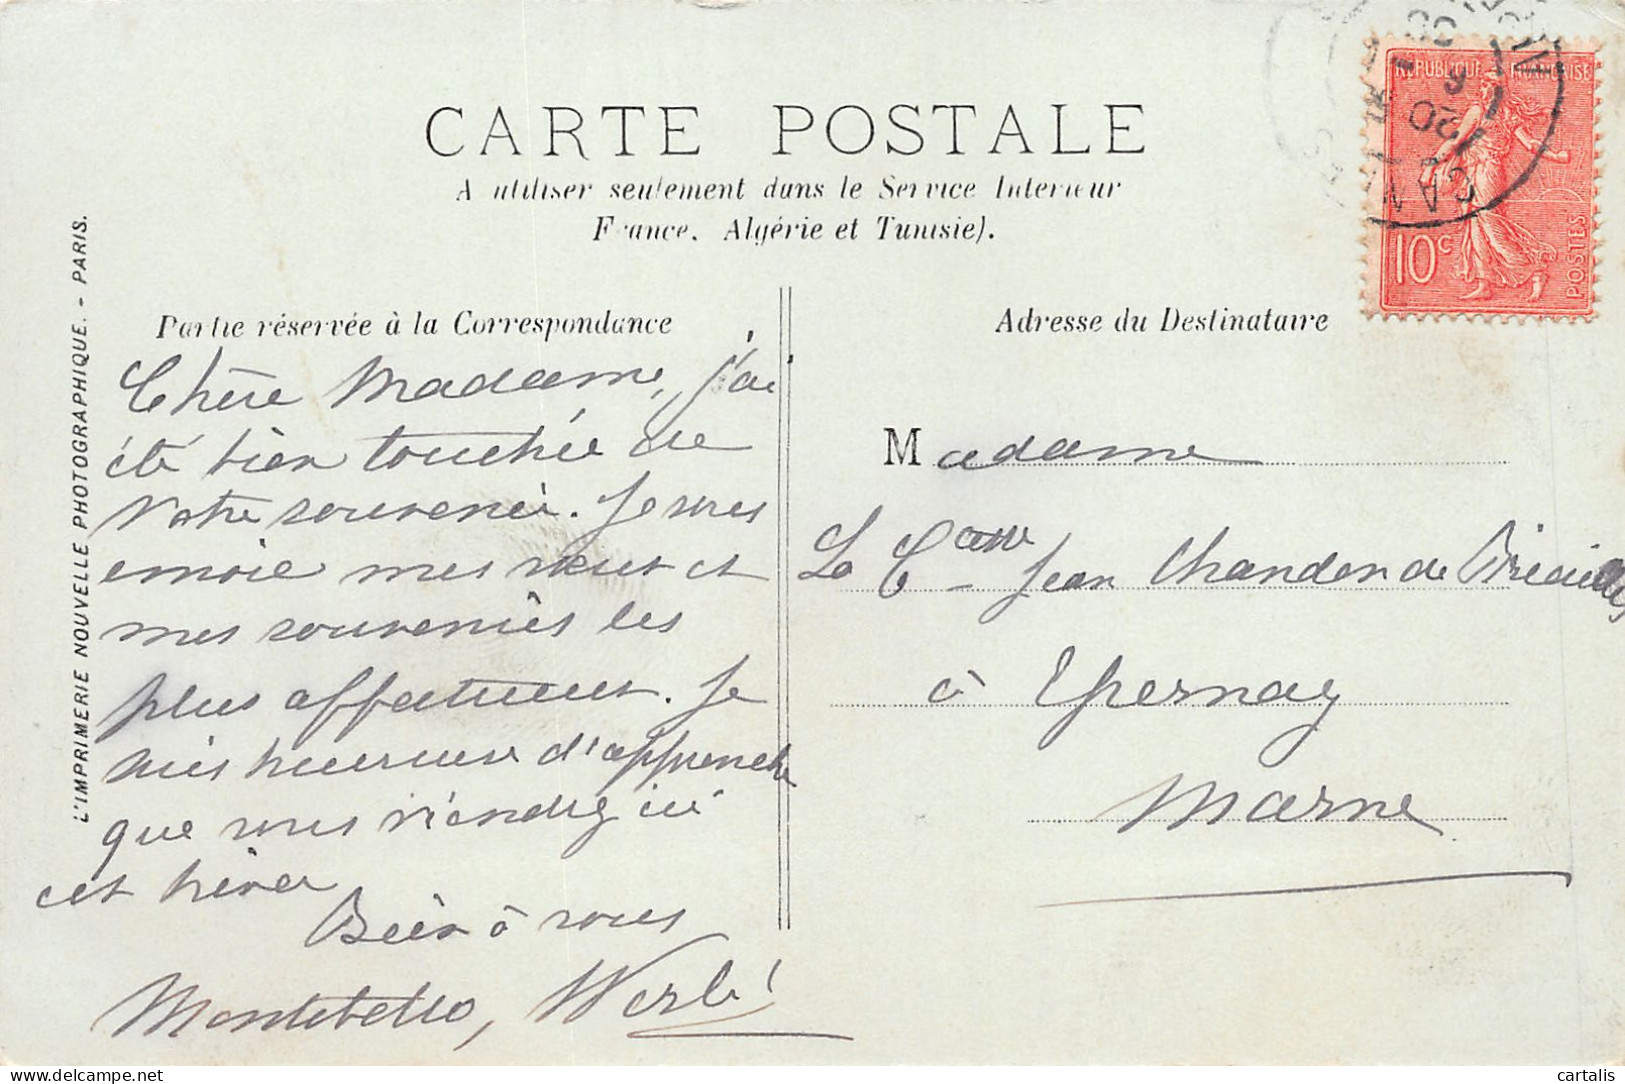 CARTE POSTALE
A utiliser seulement dans le Service Interieur
France, Algérie et Tunisie).
L'IMPRIMERIE NOUVELLE PHOTOGRAPHIQUE. - PARIS.
Partie réservée à la Correspondance
Chère Madame, j'ai
été bien touchée de
votre souvenir. Je vous
envoie mes vœux et
mes souvenirs les
plus affectueux. Je
suis heureuse d'apprendre
que vous viendrez ici
cet hiver
Bien à vous
Montebello, Werlé
REPUBLIQUE FRANCAISE
10c
POSTES
CANNES
Adresse du Destinataire
Madame
La Ctesse Jean Chandon de Briailles
à Epernay
Marne
cartalis